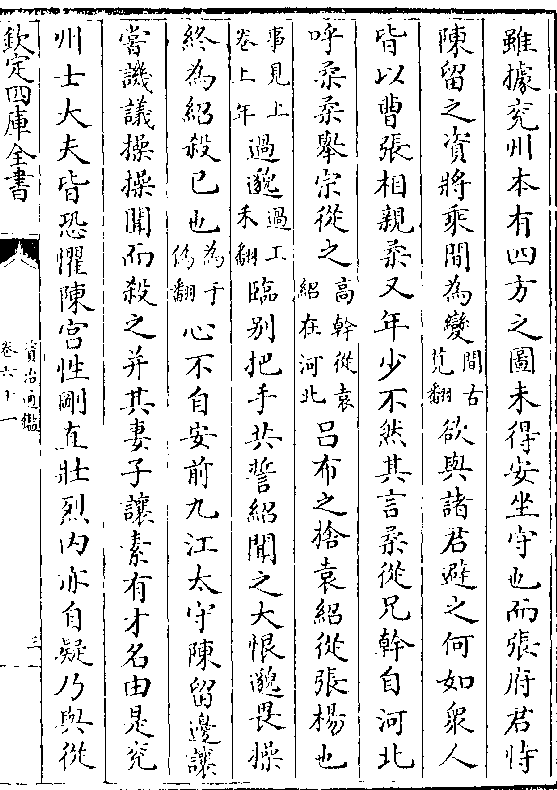 雖據兖州本有四方之圖未得安坐守也而張府君恃
陳留之資將乘間為變間古莧翻欲與諸君避之何如衆人
皆以曹張相親柔又年少不然其言柔從兄幹自河北
呼柔柔舉宗從之高幹從袁紹在河北吕布之捨袁紹從張楊也
事見上卷上年過邈過工禾翻臨别把手共誓紹聞之大恨邈畏操
終為紹殺已也為于偽翻心不自安前九江太守陳留邊讓
嘗譏議操操聞而殺之并其妻子讓素有才名由是兖
州士大夫皆恐懼陳宫性剛直壯烈内亦自疑乃與從
欽定四庫全書
資治通鑑
卷六十一
三